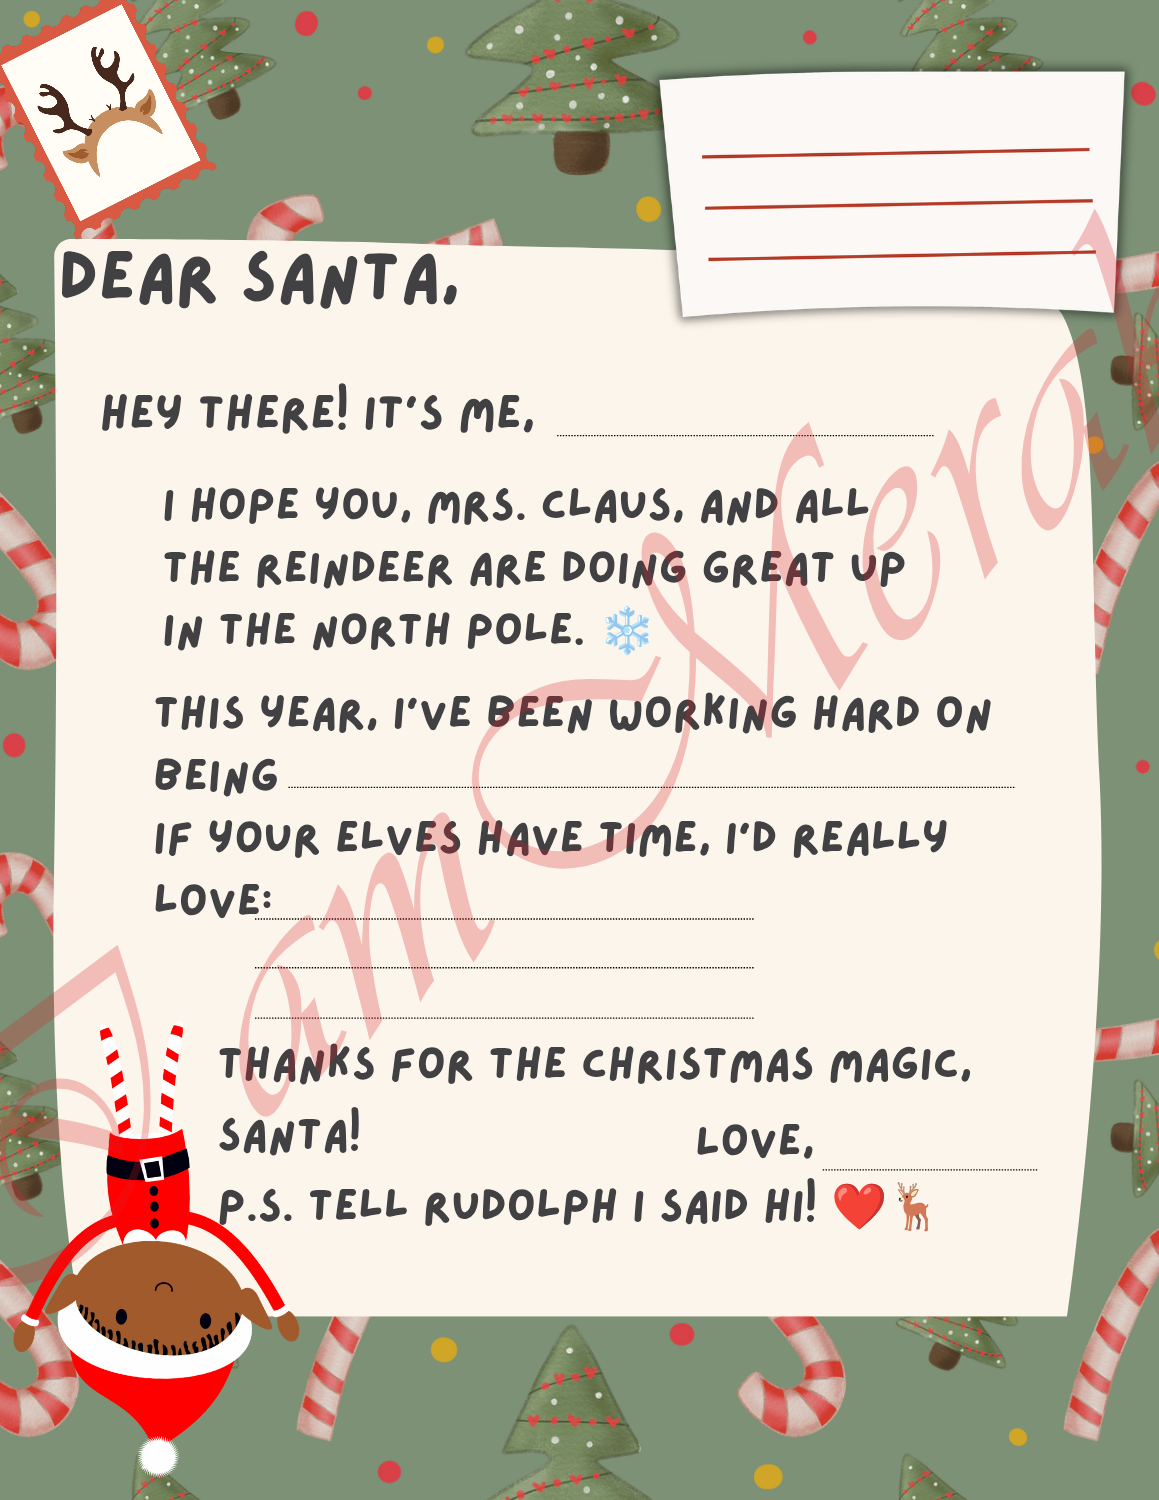 DEAR SANTA,
HEY THERE! IT'S ME,
I HOPE YOU, MRS. CLAUS, AND ALL
THE REINDEER ARE DOING GREAT UP
IN THE NORTH POLE. ❄️
THIS YEAR, I'VE BEEN WORKING HARD ON
BEING
IF YOUR ELVES HAVE TIME, I'D REALLY
LOVE:
THANKS FOR THE CHRISTMAS MAGIC,
SANTA!
LOVE,
P.S. TELL RUDOLPH I SAID HI! ❤️🦌
I am Mera